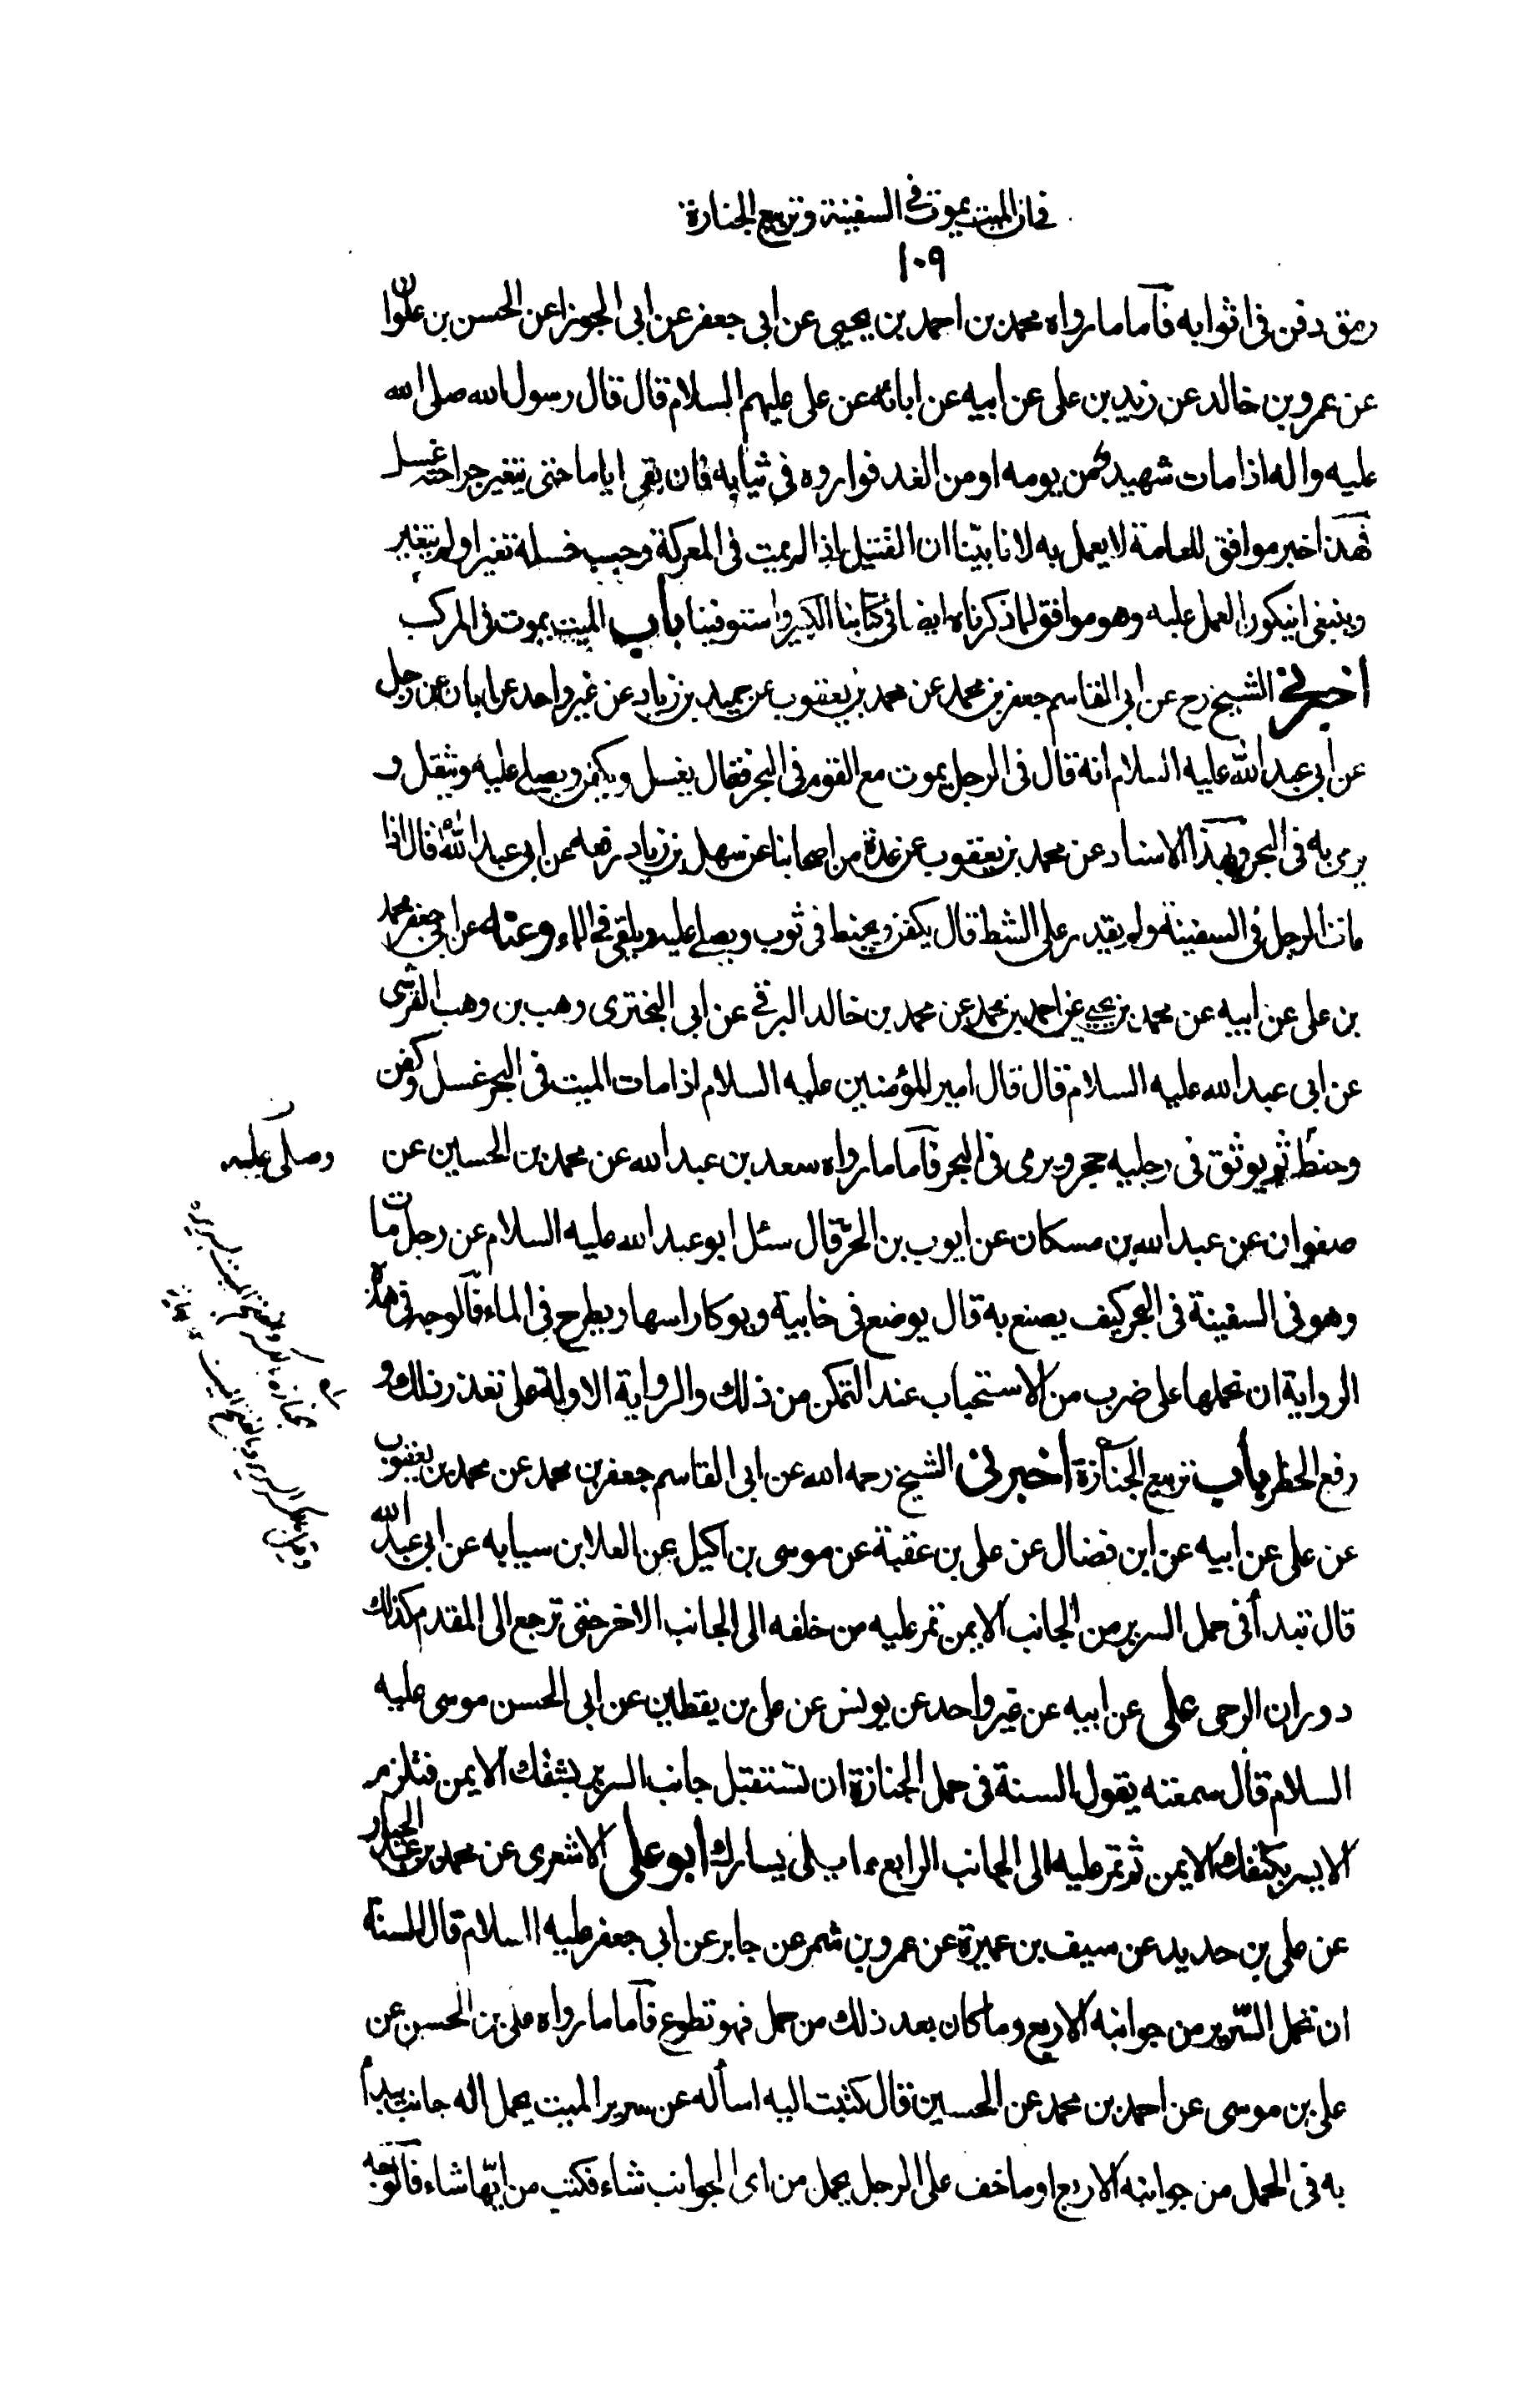 في ان الميت يموت في السفينة وتربيع الجنازة
١٠٩
رمق دفن في اثوابه فآما ما رواه محمد بن احمد بن يحيى عن ابى جعفر عن ابى الجوزا عن الحسن بن علوان
عن عمرو بن خالد عن زيد بن على عن ابيه عن ابائه عن على عليهم السلام قال قال رسول الله صلى الله
عليه واله اذا مات شهيد كم من يومه او من الغد فواروه في ثيابه فان بقى اياما حتى يتغير جراحته غسل
فهذا خبر موافق للعامة لا يعمل به لانا بيّنا ان القتيل اذا لم يمت في المعركة وجب غسله تغير اولم يتغير
وينبغى ان يكون العمل عليه وهو موافق لما ذكرناه ايضا في كتابنا الكبير واستوفينا باب الميت يموت في المركب
اخبرني الشيخ رح عن ابى القاسم جعفر بن محمد عن محمد بن يعقوب عن حميد بن زياد عن غير واحد عن ابان عن رجل
عن ابى عبد الله عليه السلام انه قال في الرجل يموت مع القوم في البحر فقال يغسل ويكفن ويصلى عليه ويثقل و
يرمى به في البحر وبهذا الاسناد عن محمد بن يعقوب عن عدة من اصحابنا عن سهل بن زياد رفعه عن ابى عبد الله ع قال اذا
مات الرجل في السفينة ولم يقدر على الشط قال يكفن ويحنط في ثوب ويصلى عليه ويلقى في الماء وعنه عن ابى جعفر محمد
بن على عن ابيه عن محمد بن يحيى عن احمد بن محمد عن محمد بن خالد البرقى عن ابى البخترى وهب بن وهب القرشى
عن ابى عبد الله عليه السلام قال قال امير المؤمنين عليه السلام اذا مات الميت في البحر غسل وكفن
وحنط ثم يوثق في رجليه حجر ويرمى في البحر فآما ما رواه سعد بن عبد الله عن محمد بن الحسين عن
وصلى عليه
صفوان عن عبد الله بن مسكان عن ايوب بن الحرّ قال سئل ابو عبد الله عليه السلام عن رجل مات
وهو في السفينة في البحر كيف يصنع به قال يوضع في خابية ويوكا راسها ويطرح في الماء فآلوجه في هذه
الرواية ان نحملها على ضرب من الاستحباب عند التمكن من ذلك والرواية الاولة على تعذر ذلك و
رفع الحظر باب تربيع الجنازة اخبرنى الشيخ رحمه الله عن ابى القاسم جعفر بن محمد عن محمد بن يعقوب
عن على عن ابيه عن ابن فضال عن على بن عقبة عن موسى بن اكيل عن العلا بن سيابه عن ابى عبد الله
قال تبدأ في حمل السرير من الجانب الايمن تمر عليه من خلفه الى الجانب الاخر حتى ترجع الى المقدم كذلك
دوران الرحى على عن ابيه عن غير واحد عن يونس عن على بن يقطين عن ابى الحسن موسى عليه
السلام قال سمعته يقول السنة في حمل الجنازة ان تستقبل جانب السرير بشقك الايمن فتلزم
الايسر بكتفك الايمن ثم تمر عليه الى الجانب الرابع مما يلى يسارك ابو على الاشعرى عن محمد بن عبد الجبار
عن على بن حديد عن سيف بن عميرة عن عمرو بن شمر عن جابر عن ابى جعفر عليه السلام قال السنة
ان تحمل السّرير من جوانبه الاربع وما كان بعد ذلك من حمل فهو تطوع فآما ما رواه على بن الحسين عن
على بن موسى عن احمد بن محمد عن الحسين قال كتبت اليه اسأله عن سرير الميت يحمل اله جانب يبدأ
به في الحمل من جوانبه الاربع او ما خف على الرجل يحمل من اى الجوانب شاء فكتب من ايّها شاء فآلوجه